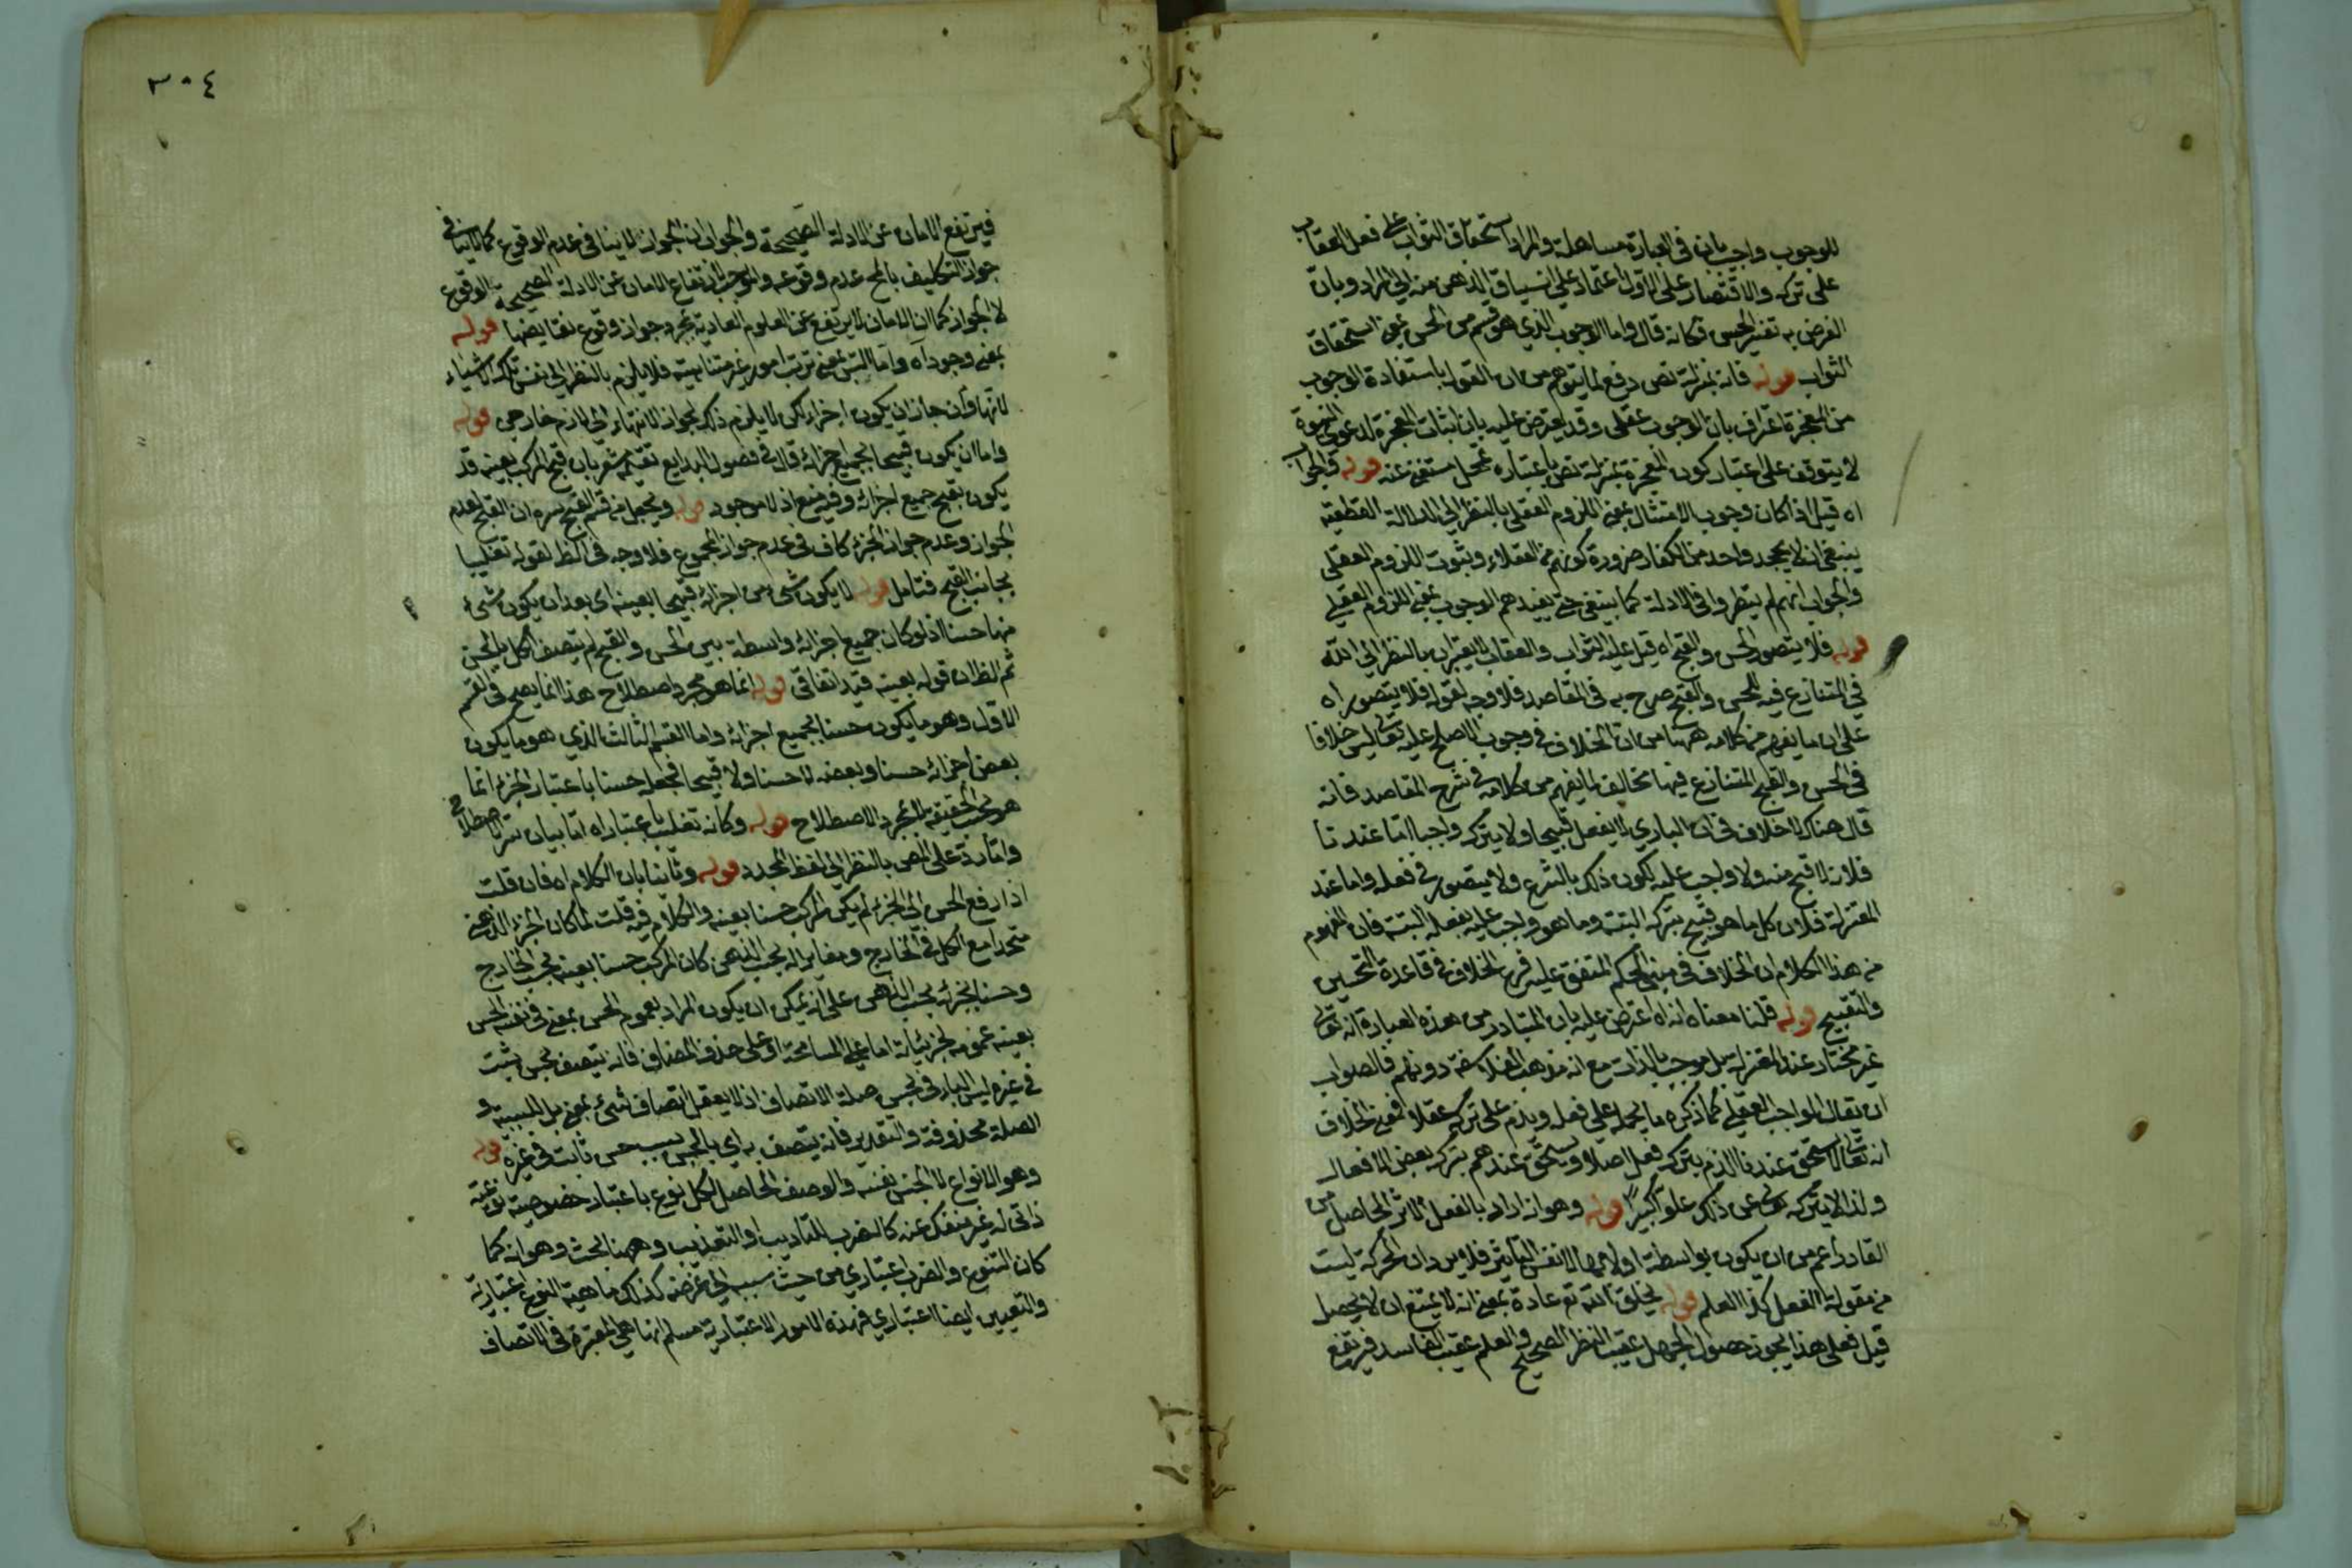 للوجوب واجيب بان في العبارة مساهلة والمراد استحقاق الثواب على فعل العقاب
على تركه والاقتصار على الاول اعتماد على انسياق الذهن منه الى المراد وبان
الغرض به تفسير الحسن فكانه قال واما الوجوب الذي هو قسم من الحسن بمعنى استحقاق
الثواب قوله فانه بمنزلة نص دفع لما يتوهم من ان القول باستفادة الوجوب
من المعجزة اعتراف بان الوجوب عقلي وقد يعترض عليه بان اثبات المعجزة لدعوى النبوة
لا يتوقف على اعتبار كون المعجزة بمنزلة نص باعتباره محل مستغنى عنه قوله فالجواب
اه قيل اذا كان وجوب الامتثال بمعنى اللزوم العقلي بالنظر الى الدلالة القطعية
ينبغي ان لا يجحد واحد من الكفار ضرورة كونهم من العقلاء وثبوت اللزوم العقلي
والجواب انهم لم ينظروا في الادلة كما ينبغي حتى يفيدهم الوجوب بمعنى اللزوم العقلي
قوله فلا يتصور الحسن والقبح اه قيل عليه الثواب والعقاب لا يعتبران بالنظر الى الله
في المتنازع فيه للحسن والقبح صرح به في المقاصد فلا وجه لقوله فلا يتصور اه
على ان ما يفهم من كلامه ههنا من ان الخلاف في وجوب الاصلح عليه تعالى ليس خلافا
في الحسن والقبح المتنازع فيها مخالف لما يفهم من كلامه في شرح المقاصد فانه
قال هناك لا خلاف في ان الباري لا يفعل قبيحا ولا يترك واجبا اما عندنا
فلانه لا قبح منه ولا واجب عليه لكون ذلك بالشرع ولا يتصور في فعله واما عند
المعتزلة فلان كل ما هو قبيح يتركه البتة وما هو واجب عليه يفعله البتة فان المفهوم
من هذا الكلام ان الخلاف في مبنى الحكم المتفق عليه فرع الخلاف في قاعدة التحسين
والتقبيح قوله قلنا معناه انه اه اعترض عليه بان المتبادر من هذه العبارة انه تعالى
غير مختار عند المعتزلة بل موجب بالذات مع انه مذهب الفلاسفة دونهم فالصواب
ان يقال الواجب العقلي كما ذكره ما يحمد على فعله ويذم على تركه عقلا فمعنى الخلاف
انه تعالى لا يستحق عندنا الذم بترك فعل اصلا ويستحق عندهم بترك بعض الافعال
ولذا لا يتركه تعالى عن ذلك علوا كبيرا قوله وهو انه اراد بالفعل الاثر الحاصل من
القادر اعم من ان يكون بواسطة او لا بها لا نفس التاثير فلا يرد ان الحركة ليست
من مقولة الفعل كذا العلم قوله بخلق الله تع عادة بمعنى انه لا يمتنع ان لا يحصل
قيل فعلى هذا يجوز حصول الجهل عقيب النظر الصحيح والعلم عقيب الفاسد فيرتفع
٣٠٤
فيرتفع الامان عن الادلة الصحيحة والجواب ان الجواز لا ينافي عدم الوقوع كما لا ينافي
جواز التكليف بالمح عدم وقوعه والموجب لارتفاع الامان عن الادلة الصحيحة الوقوع
لا الجواز كما ان الامان لا يرتفع عن العلوم العادية بمجرد جواز وقوع نقايضها قوله
بمعنى وجود اه واما التس بمعنى ترتب امور غير متناهية فلا يلزم بالنظر الى نفس تلك الاشياء
لانها وان جاز ان يكون اجزاء لكن لا يلزم ذلك لجواز الانتهاء الى لازم خارجي قوله
واما ان يكون قبيحا لجميع اجزائه قال في فصول البدايع تقسيمه يشعر بان قبح المركب بعينه قد
يكون بقبح جميع اجزائه وفيه منع اذ لا موجود قوله ويجعل من قسم القبح سره ان القبح لعدم
الجواز وعدم جواز الجزء كاف في عدم جواز المجموع فلا وجه في الظ لقوله تغليبا
بجانب القبح فتامل قوله لا يكون شئ من اجزائه قبيحا بعينه اى بعد ان يكون شئ
منها حسنا اذ لو كان جميع اجزائه واسطة بين الحسن والقبح لم يتصف الكل بالحسن
ثم الظ ان قوله بعينه قيد اتفاقي قوله انما هو مجرد اصطلاح هذا انما يصح في القسم
الاول وهو ما يكون حسنا لجميع اجزائه واما القسم الثالث الذي هو ما يكون
بعض اجزائه حسنا وبعضه لا حسنا ولا قبيحا فجعله حسنا باعتبار الجزء انما
هو بحسب الحقيقة لا بمجرد الاصطلاح قوله وكانه تغليب باعتبار اه اما بيان سر الاصطلاح
واما رد على المص بالنظر الى لفظ المجرد قوله وثانيا بان الكلام اه فان قلت
اذا رفع الحسن الى الجزء لم يكن المركب حسنا بعينه والكلام فيه قلت لما كان الجزء الذهني
متحدا مع الكل في الخارج ومغايرا له بحسب الذهن كان المركب حسنا بعينه بحسب الخارج
وحسنا لجزئه بحسب الذهن على انه يمكن ان يكون المراد بعموم الحسن بمعنى في نفسه الحسن
بعينه عمومه لجزئياته اما على المسامحة او على حذف المضاف فانه يتصف بحسن يثبت
في غيره ليس الباء في بحسن صلة الاتصاف اذ لا يعقل اتصاف شئ بمعنى بل للسببية و
الصلة محذوفة والتقدير فانه يتصف به اي بالحسن بسبب حسن ثابت في غيره قوله
وهو الانواع لا الجنس نفسه والوصف الحاصل لكل نوع باعتبار خصوصيته نوعيته
ذاتي له غير منفك عنه كالضرب للتاديب او التعذيب وههنا بحث وهو انه كما
كان التنوع والضرب اعتباري من حيث سبب الى غرضه كذلك ماهية النوع اعتبارية
والتعيين ايضا اعتباري فهذه الامور الاعتبارية مسلم انها هي المعتبرة في الاتصاف